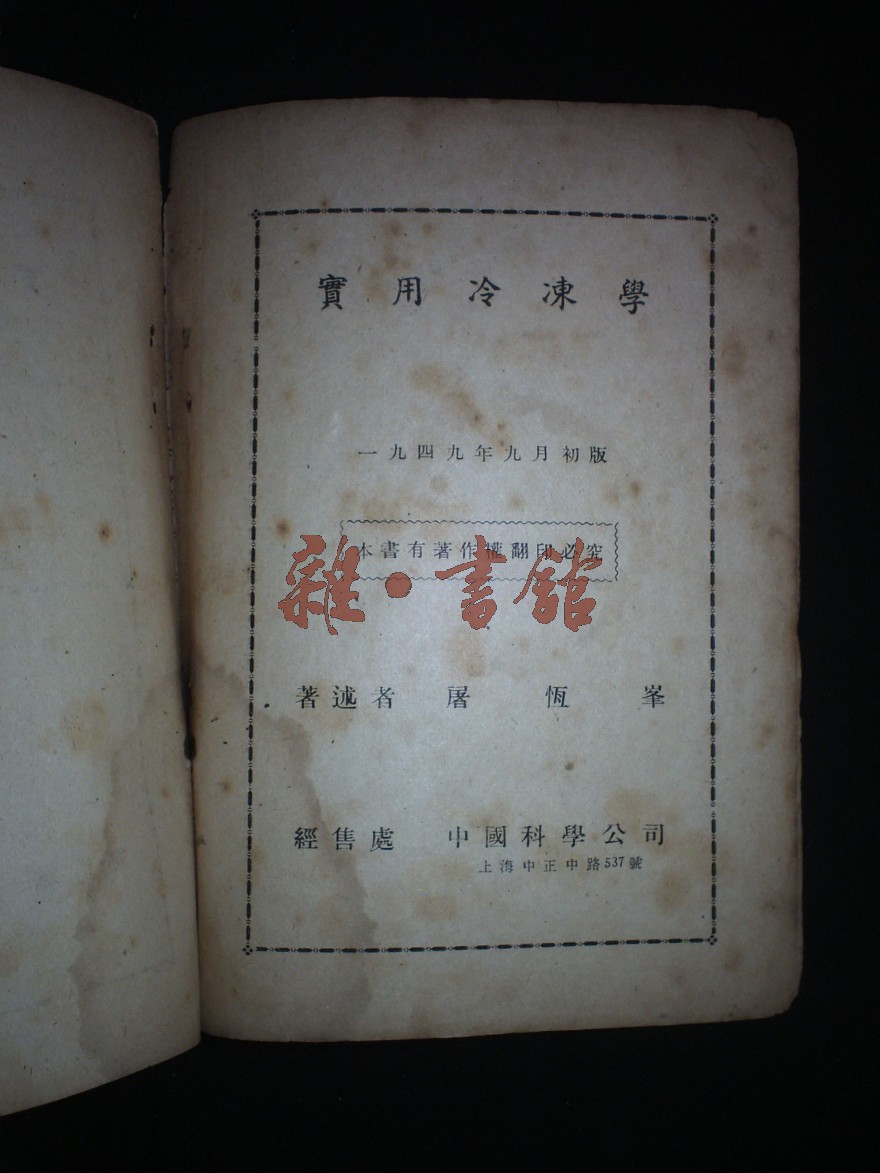 實用冷凍學
一九四九年九月初版
本書有著作權翻印必究
雜·書館
著述者 屠恆峯
經售處 中國科學公司
上海中正中路537號